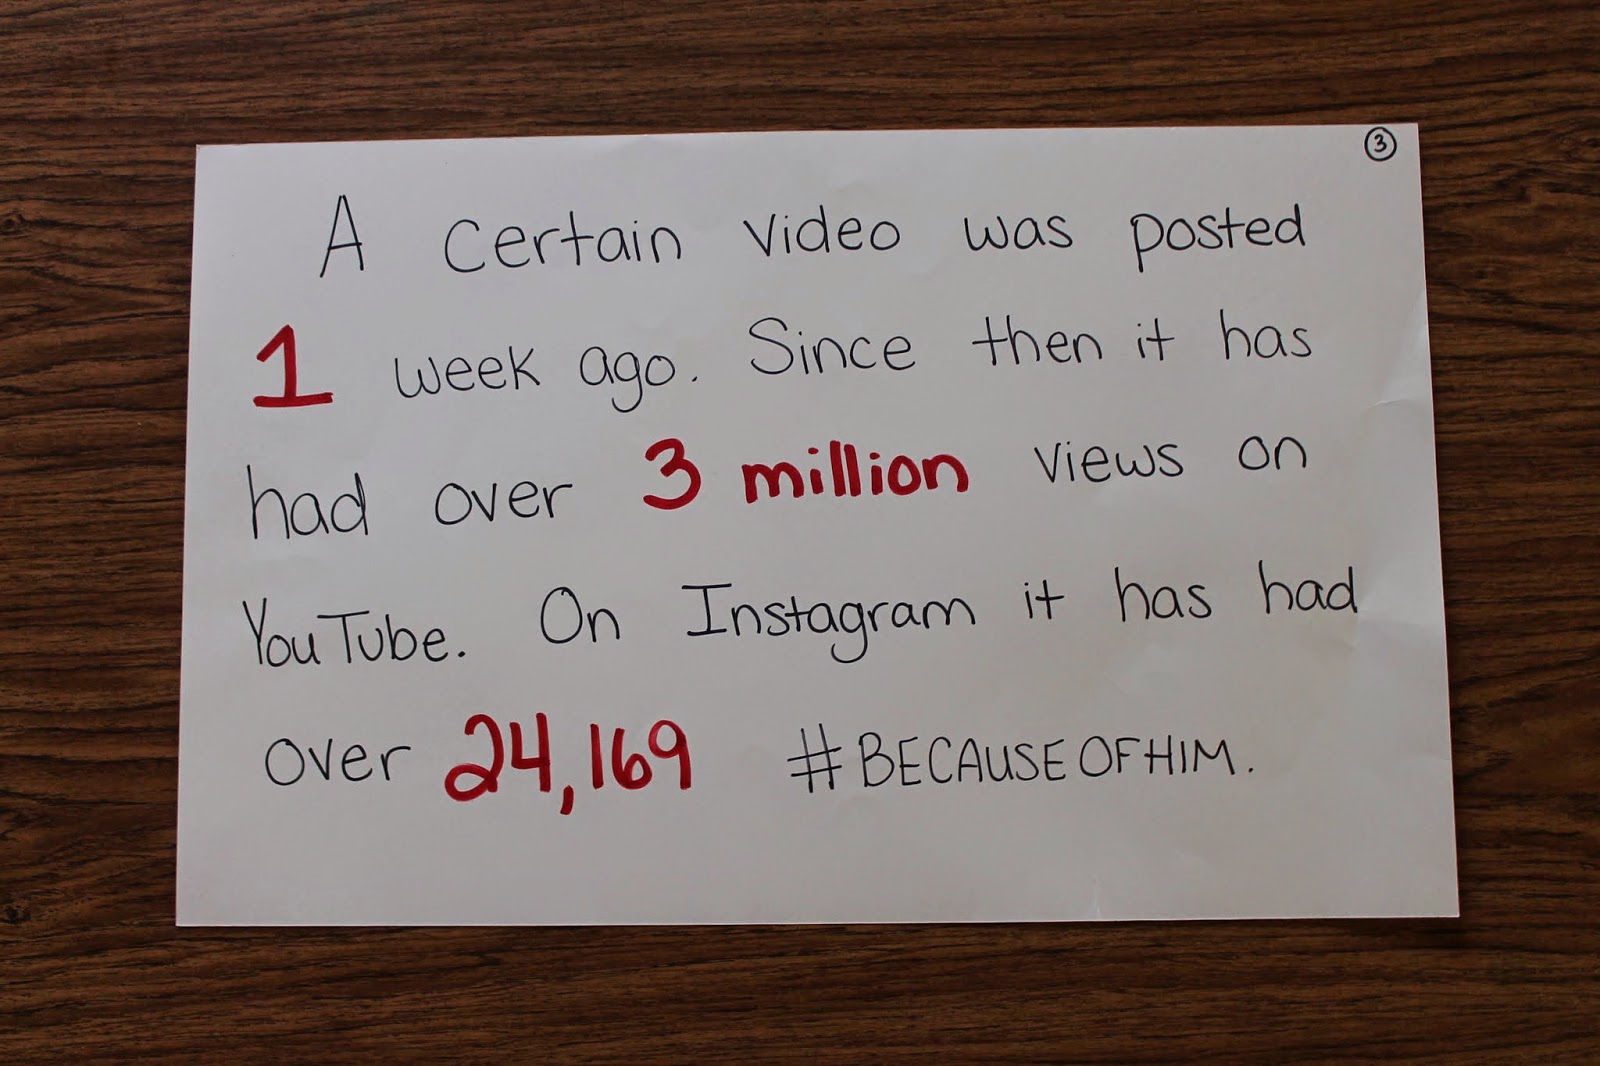 3
A certain video was posted
1 week ago. Since then it has
had over 3 million views on
YouTube. On Instagram it has had
over 24,169 #BECAUSEOFHIM.